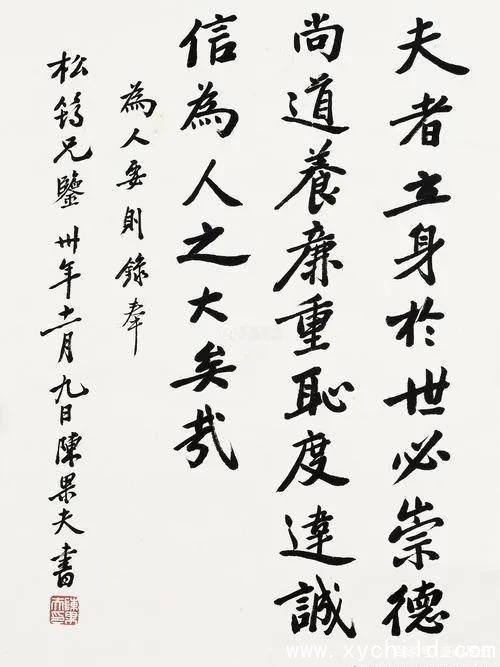 夫者立身於世必崇德
尚道養廉重恥度違誠
信為人之大矣哉
為人要則錄奉
松鶴兄鑒 卅年十一月九日陳果夫書
陳果夫印
www.xychild.com